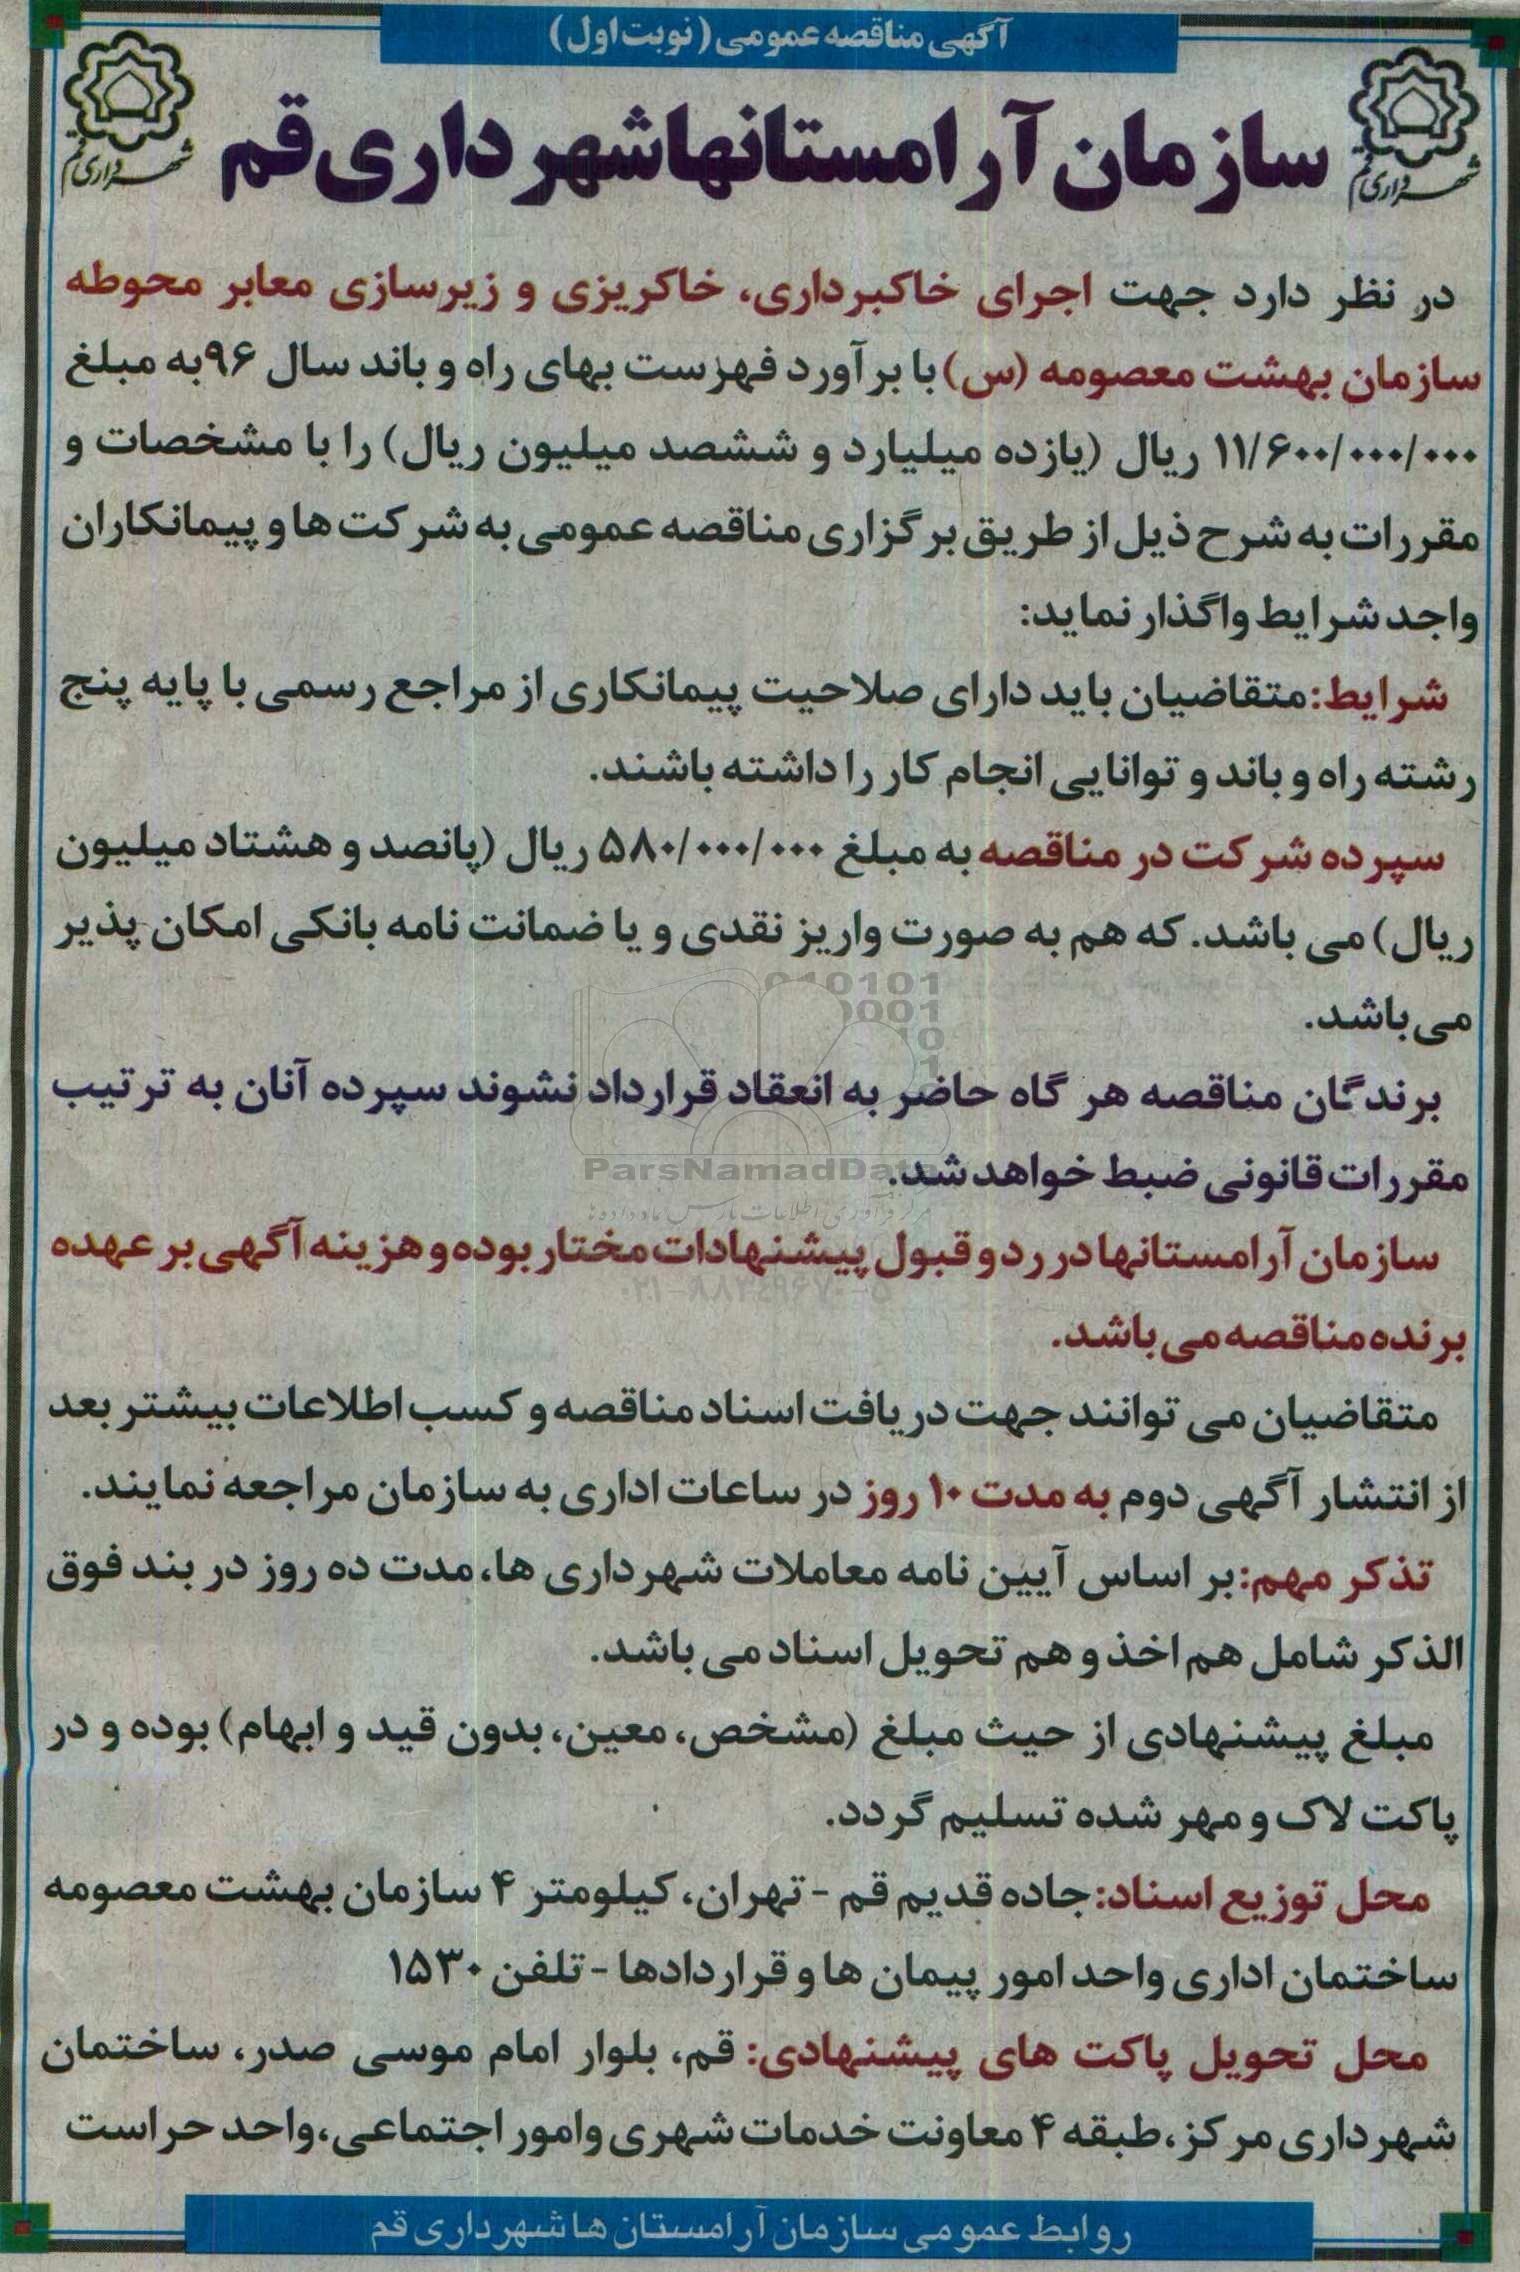 آگهی مناقصه عمومی (نوبت اول)
سازمان آرامستانها شهرداری قم
شهرداری قم
شهرداری قم
در نظر دارد جهت اجرای خاکبرداری، خاکریزی و زیرسازی معابر محوطه
سازمان بهشت معصومه (س) با برآورد فهرست بهای راه و باند سال ۹۶ به مبلغ
۱۱/۶۰۰/۰۰۰/۰۰۰ ریال (یازده میلیارد و ششصد میلیون ریال) را با مشخصات و
مقررات به شرح ذیل از طریق برگزاری مناقصه عمومی به شرکت ها و پیمانکاران
واجد شرایط واگذار نماید:
شرایط: متقاضیان باید دارای صلاحیت پیمانکاری از مراجع رسمی با پایه پنج
رشته راه و باند و توانایی انجام کار را داشته باشند.
سپرده شرکت در مناقصه به مبلغ ۵۸۰/۰۰۰/۰۰۰ ریال (پانصد و هشتاد میلیون
ریال) می باشد. که هم به صورت واریز نقدی و یا ضمانت نامه بانکی امکان پذیر
می باشد.
برندگان مناقصه هر گاه حاضر به انعقاد قرارداد نشوند سپرده آنان به ترتیب
مقررات قانونی ضبط خواهد شد.
ParsNamadData
مرکز فرآوری اطلاعات پارس نماد داده ها
سازمان آرامستانها در رد و قبول پیشنهادات مختار بوده و هزینه آگهی بر عهده
۰۲۱-۸۸۳۴۹۶۷۰-۵
برنده مناقصه می باشد.
متقاضیان می توانند جهت دریافت اسناد مناقصه و کسب اطلاعات بیشتر بعد
از انتشار آگهی دوم به مدت ۱۰ روز در ساعات اداری به سازمان مراجعه نمایند.
تذکر مهم: بر اساس آیین نامه معاملات شهرداری ها، مدت ده روز در بند فوق
الذکر شامل هم اخذ و هم تحویل اسناد می باشد.
مبلغ پیشنهادی از حیث مبلغ (مشخص، معین، بدون قید و ابهام) بوده و در
پاکت لاک و مهر شده تسلیم گردد.
محل توزیع اسناد: جاده قدیم قم - تهران، کیلومتر ۴ سازمان بهشت معصومه
ساختمان اداری واحد امور پیمان ها و قراردادها - تلفن ۱۵۳۰
محل تحویل پاکت های پیشنهادی: قم، بلوار امام موسی صدر، ساختمان
شهرداری مرکز، طبقه ۴ معاونت خدمات شهری وامور اجتماعی، واحد حراست
روابط عمومی سازمان آرامستان ها شهرداری قم